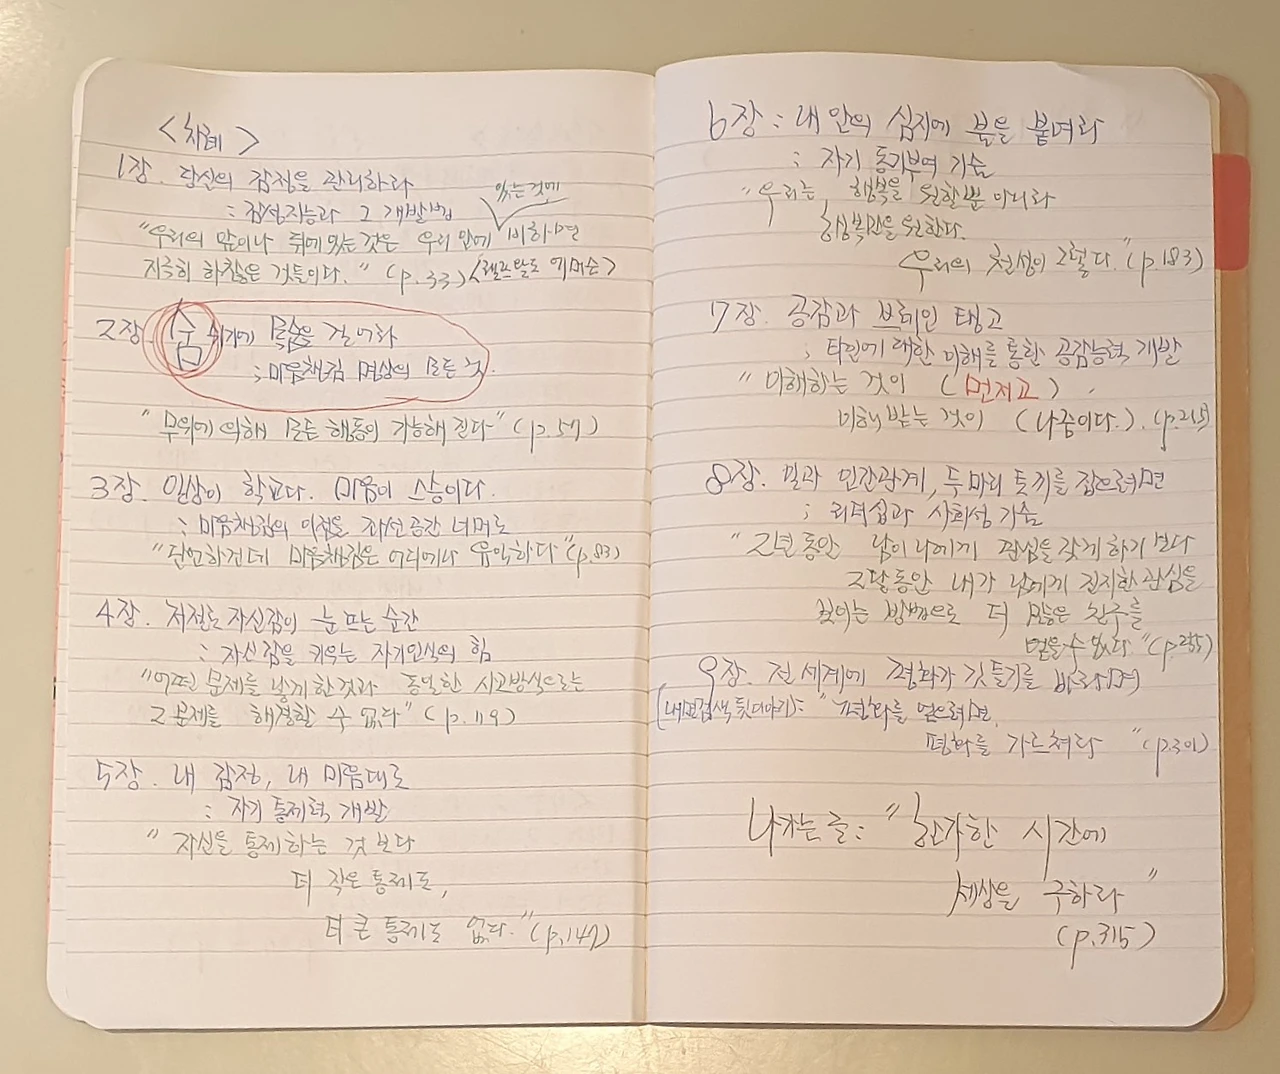 <차례>
1장. 당신의 감정을 관리하라
: 감성지능과 그 개발법
있는 것에
"우리의 앞이나 뒤에 있는 것은 우리 안에 비하면
지극히 하찮은 것들이다." (p.33) <랠프 왈도 에머슨>
2장. 숨 쉬기에 목숨을 걸어라
; 마음챙김 명상의 모든 것.
"무위에 의해 모든 행동이 가능해 진다" (p.57)
3장. 일상이 학교다. 마음이 스승이다.
: 마음챙김의 이점을 좌선 공간 너머로
"단언하건데 마음챙김은 어디에나 유익하다" (p.83)
4장. 저절로 자신감이 눈 뜨는 순간
: 자신감을 키우는 자기인식의 힘
"어떤 문제를 낳게 한 것과 동일한 사고방식으로는
그 문제를 해결할 수 없다" (p.119)
5장. 내 감정, 내 마음대로
: 자기 통제력 개발
" 자신을 통제하는 것 보다
더 작은 통제도,
더 큰 통제도 없다." (p.147)
6장 : 내 안의 심지에 불을 붙여라
: 자기 동기부여 기술
"우리는, 행복을 원할 뿐 아니라
행복만을 원한다.
우리의 천성이 그렇다." (p.183)
7장. 공감과 브레인 탱고
; 타인에 대한 이해를 통한 공감능력 개발
" 이해하는 것이 (먼저고)
이해 받는 것이 (나중이다.). (p.215)
8장. 일과 인간관계, 두 마리 토끼를 잡으려면
; 리더십과 사회성 기술
"2년 동안 남이 나에게 관심을 갖게 하기 보다
2달 동안 내가 남에게 진지한 관심을
보이는 방법으로 더 많은 친구를
얻을 수 있다" (p.255)
9장. 전 세계에 평화가 깃들기를 바라며
(내면검색 뒷이야기): "평화를 얻으려면,
평화를 가르쳐라 " (p.301)
나가는 글: " 한가한 시간에
세상을 구하라"
(p.315)